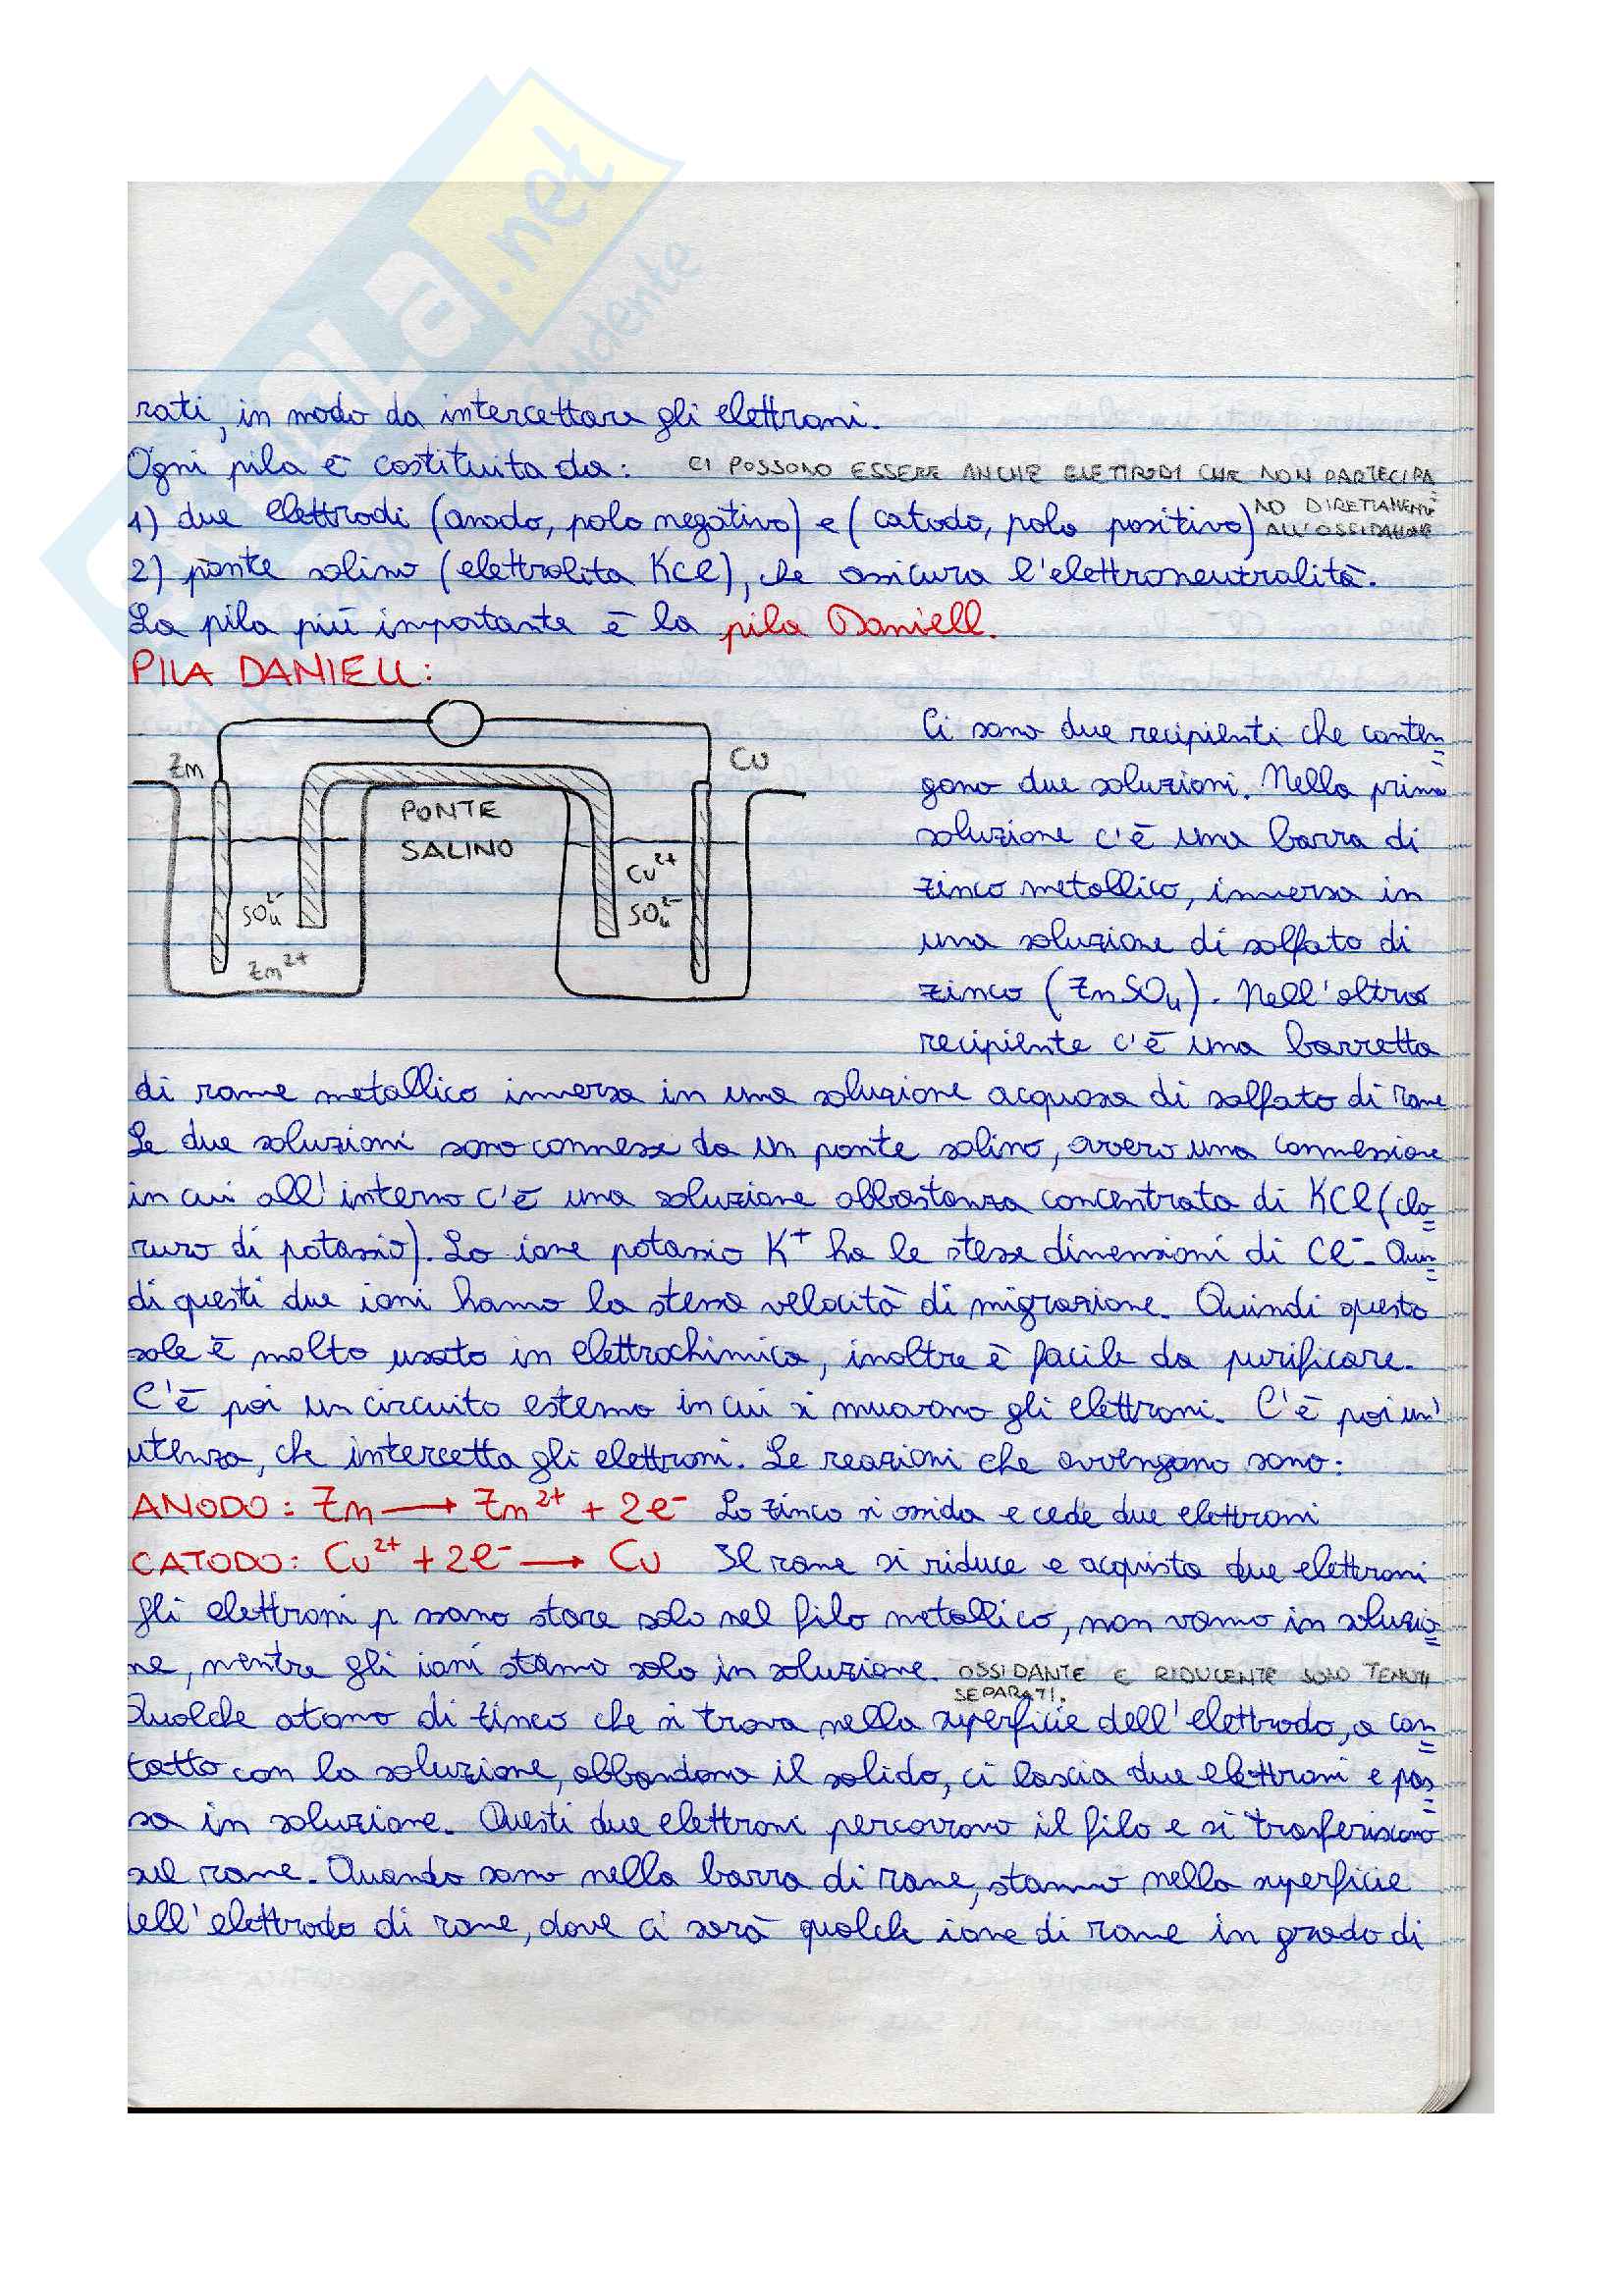 rati, in modo da intercettare gli elettroni.
Ogni pila è costituita da: CI POSSONO ESSERE ANCHE ELETTRODI CHE NON PARTECIPA
NO DIRETTAMENTE
1) due elettrodi (anodo, polo negativo) e (catodo, polo positivo) ALL'OSSIDAZIONE
2) ponte salino (elettrolita KCl), che assicura l'elettroneutralità.
La pila più importante è la pila Daniell.
PILA DANIELL:
Zn
Cu
PONTE
SALINO
SO₄²⁻
Zn²⁺
Cu²⁺
SO₄²⁻
Ci sono due recipienti che conten=
gono due soluzioni. Nella prima
soluzione c'è una barra di
zinco metallico, immersa in
una soluzione di solfato di
zinco (ZnSO₄). Nell'altro
recipiente c'è una barretta
di rame metallico immersa in una soluzione acquosa di solfato di rame
Le due soluzioni sono connesse da un ponte salino, ovvero una connessione
in cui all'interno c'è una soluzione abbastanza concentrata di KCl (clo=
ruro di potassio). Lo ione potassio K⁺ ha le stesse dimensioni di Cl⁻. Quin=
di questi due ioni hanno la stessa velocità di migrazione. Quindi questo
sale è molto usato in elettrochimica, inoltre è facile da purificare.
C'è poi un circuito esterno in cui si muovono gli elettroni. C'è poi un'
utenza, che intercetta gli elettroni. Le reazioni che avvengono sono:
ANODO: Zn → Zn²⁺ + 2e⁻ Lo zinco si ossida e cede due elettroni
CATODO: Cu²⁺ + 2e⁻ → Cu Il rame si riduce e acquista due elettroni
gli elettroni possono stare solo nel filo metallico, non vanno in soluzio=
ne, mentre gli ioni stanno solo in soluzione. OSSIDANTE E RIDUCENTE SONO TENUTI
SEPARATI.
Qualche atomo di zinco che si trova nella superficie dell'elettrodo, a con=
tatto con la soluzione, abbandona il solido, ci lascia due elettroni e pas=
sa in soluzione. Questi due elettroni percorrono il filo e si trasferiscono
sul rame. Quando sono nella barra di rame, stanno nella superficie
dell'elettrodo di rame, dove ci sarà qualche ione di rame in grado di
.net